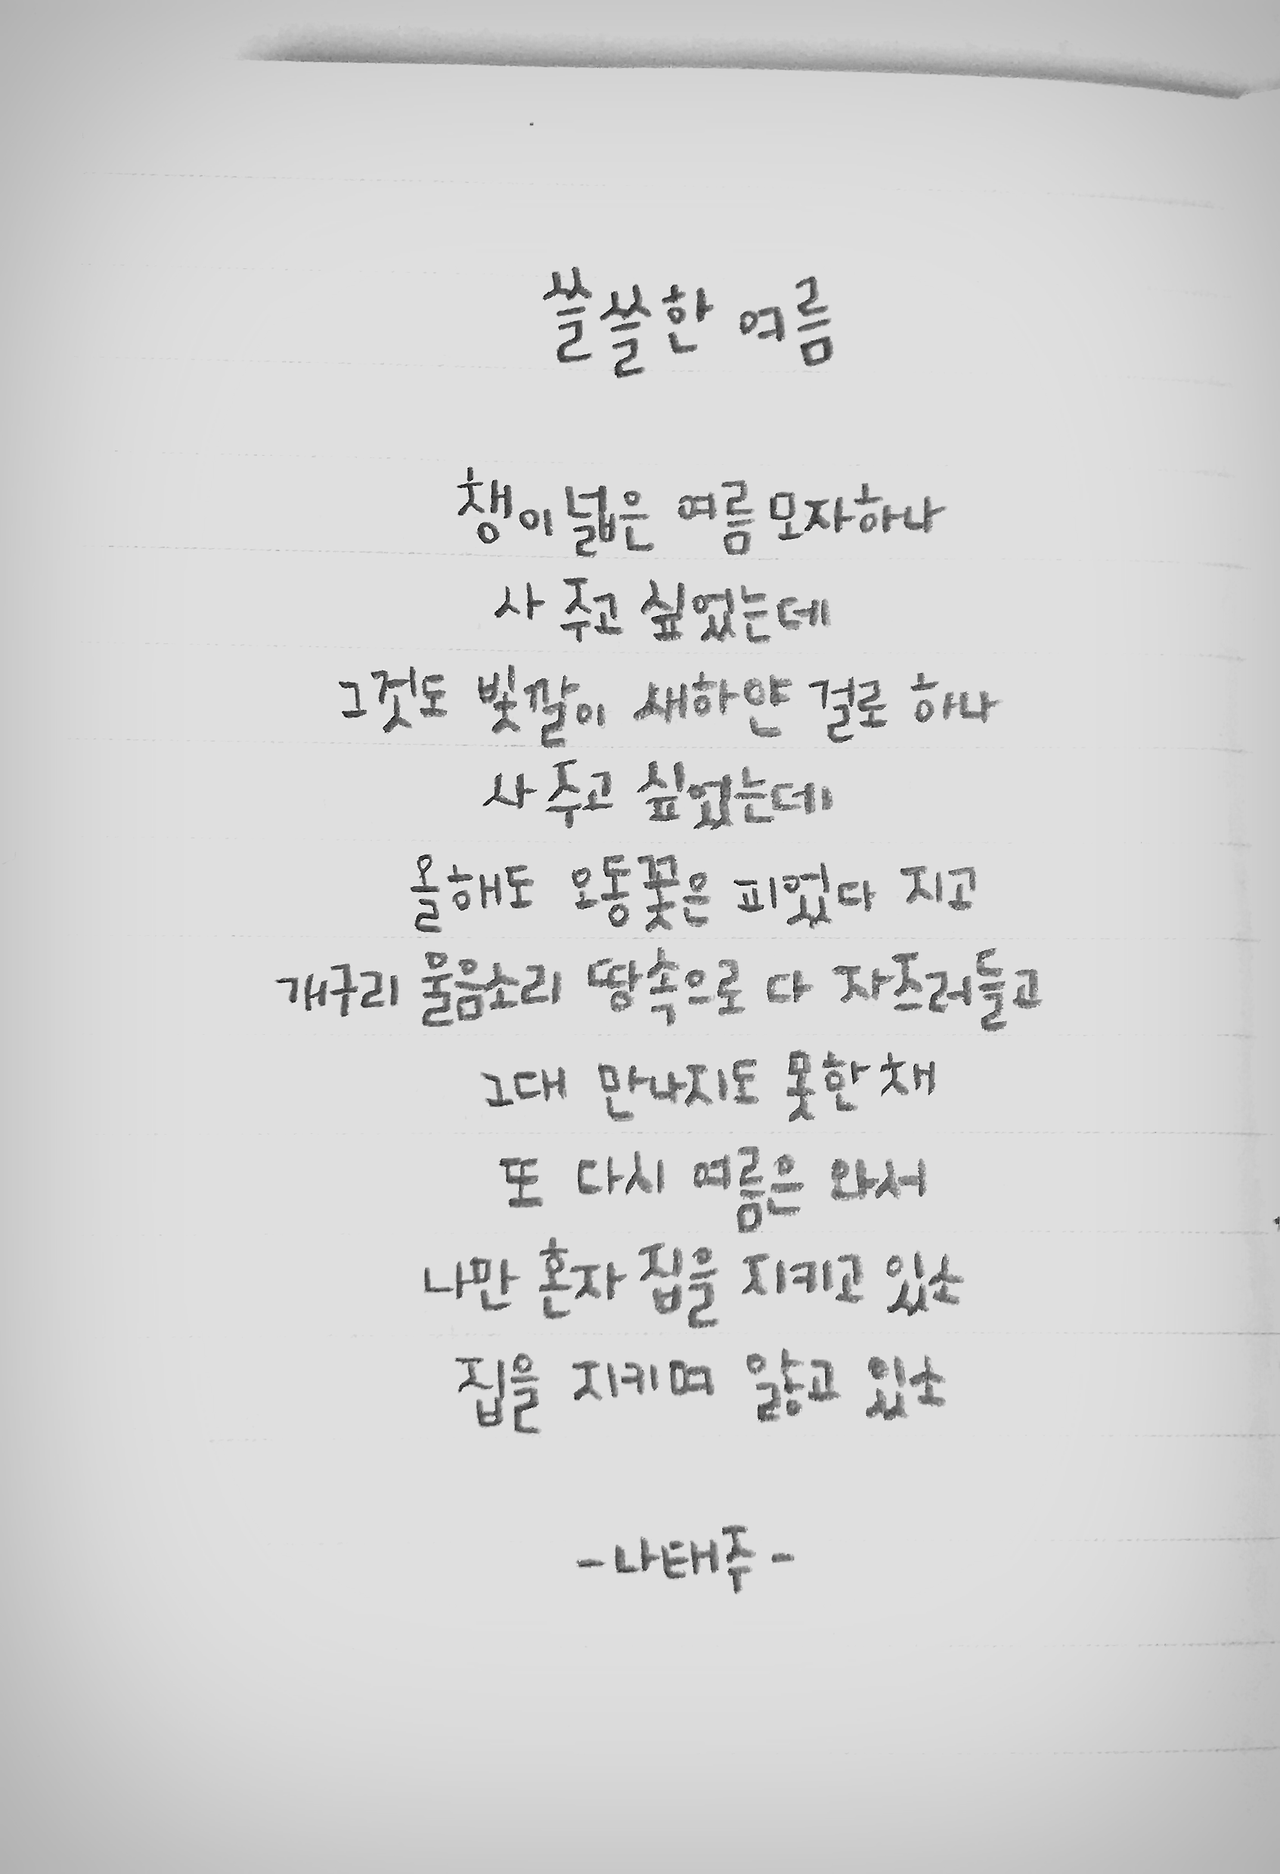 쓸쓸한 여름
챙이 넓은 여름 모자 하나
사 주고 싶었는데
그것도 빛깔이 새하얀 걸로 하나
사 주고 싶었는데
올해도 오동꽃은 피었다 지고
개구리 울음소리 땅속으로 다 자즈러들고
그대 만나지도 못한 채
또 다시 여름은 와서
나만 혼자 집을 지키고 있소
집을 지키며 앓고 있소
-나태주-